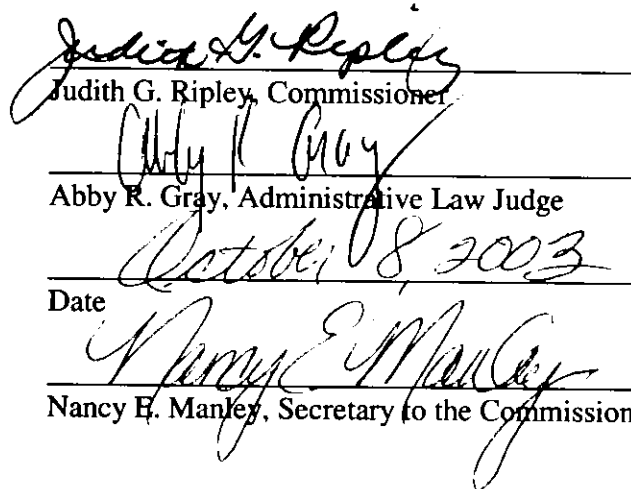 Judith G. Ripley
Judith G. Ripley, Commissioner
Abby R Gray
Abby R. Gray, Administrative Law Judge
October 8, 2003
Date
Nancy E. Manley
Nancy E. Manley, Secretary to the Commission